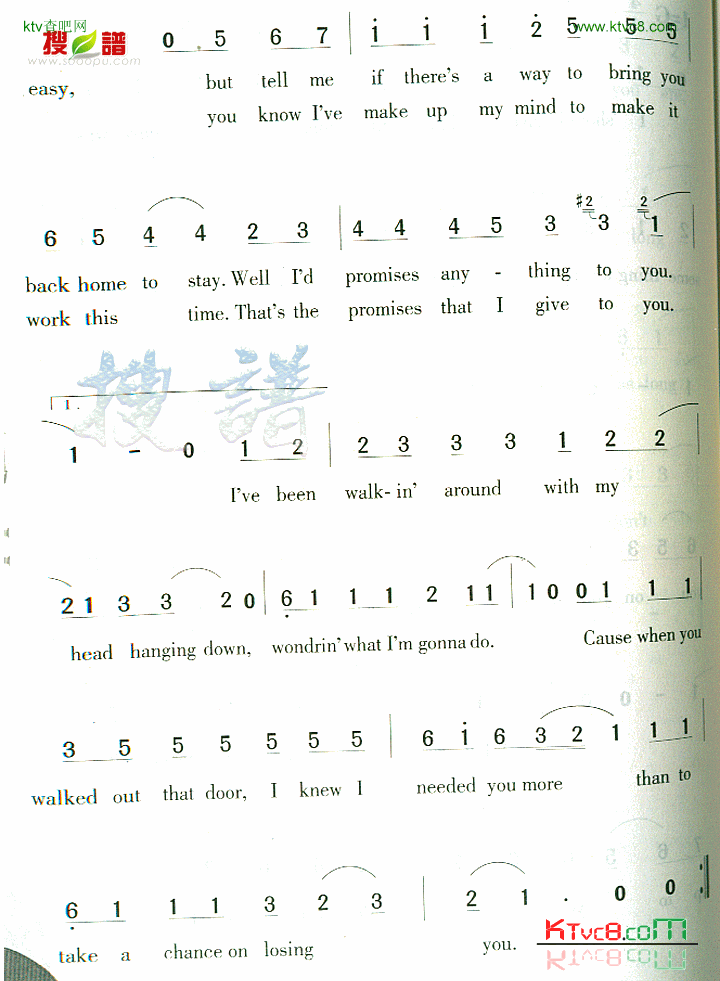 ktv查吧网
www.ktvc8.com
搜 谱
www.sooopu.com
0 . 5 6 7 | i i i 2 5 5 5
easy, but tell me if there's a way to bring you
you know I've make up my mind to make it
6 5 4 4 2 3 | 4 4 4 5 3 #2 3 2 1 |
back home to stay. Well I'd promises any - thing to you.
work this time. That's the promises that I give to you.
搜 谱
1.
1 - 0 1 2 | 2 3 3 3 1 2 2 |
I've been walk-in' around with my
2 1 3 3 2 0 | 6 1 1 1 2 1 1 | 1 0 0 1 1 1
head hanging down, wondrin' what I'm gonna do. Cause when you
3 5 5 5 5 5 5 | 6 i 6 3 2 1 1 1 |
walked out that door, I knew I needed you more than to
6 1 1 1 3 2 3 | 2 1 . 0 0 :|
take a chance on losing you.
KTvc8.com